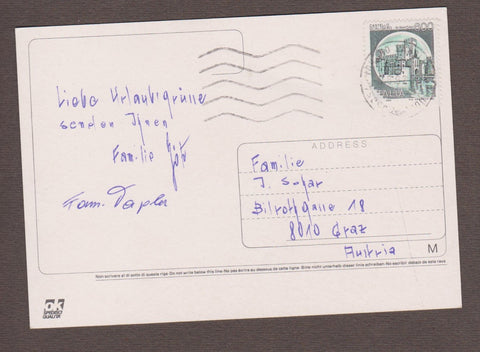 Liebe Urlaubsgrüsse
senden Ihnen
Familie
Fam.
ADDRESS
Familie
J.
18
8010 Graz
Austria
M
Non scrivere al di sotto di questa riga - Do not write below this line - Ne pas écrire au dessous de cette ligne - Bitte nicht unterhalb dieser linie schreiben - No escribir debajo de esta raya
OK
SPECIAL
QUALITÀ
600